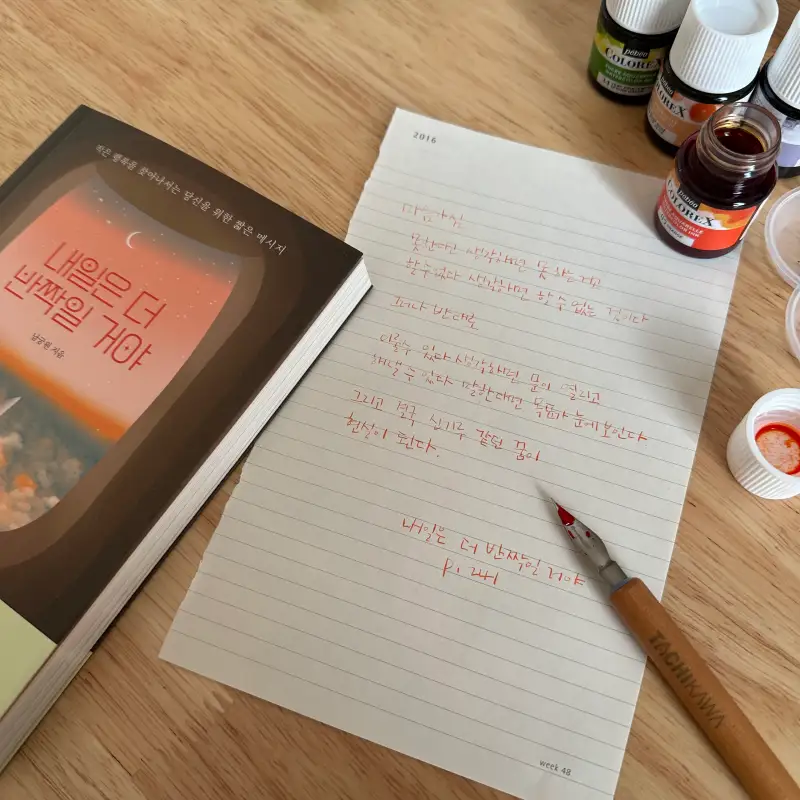 작은 행복을 찾아나서는 당신을 위한 짧은 메시지
내일은 더
반짝일 거야
남궁원 지음
2016
마음가짐
못한다면 생각하면 못 하는거고
할 수 없다 생각하면 할 수 없는 것이다
허나 반대로
이룰 수 있다 생각하면 문이 열리고
해낼 수 있다 말한다면 목표가 눈에 보인다
그리고 결국 신기루 같던 꿈이
현실이 된다.
내일은 더 반짝일 거야
p. 241
week 48
pebeo
COLOREX
pebeo
COLOREX
pebeo
COLOREX
TACHIKAWA